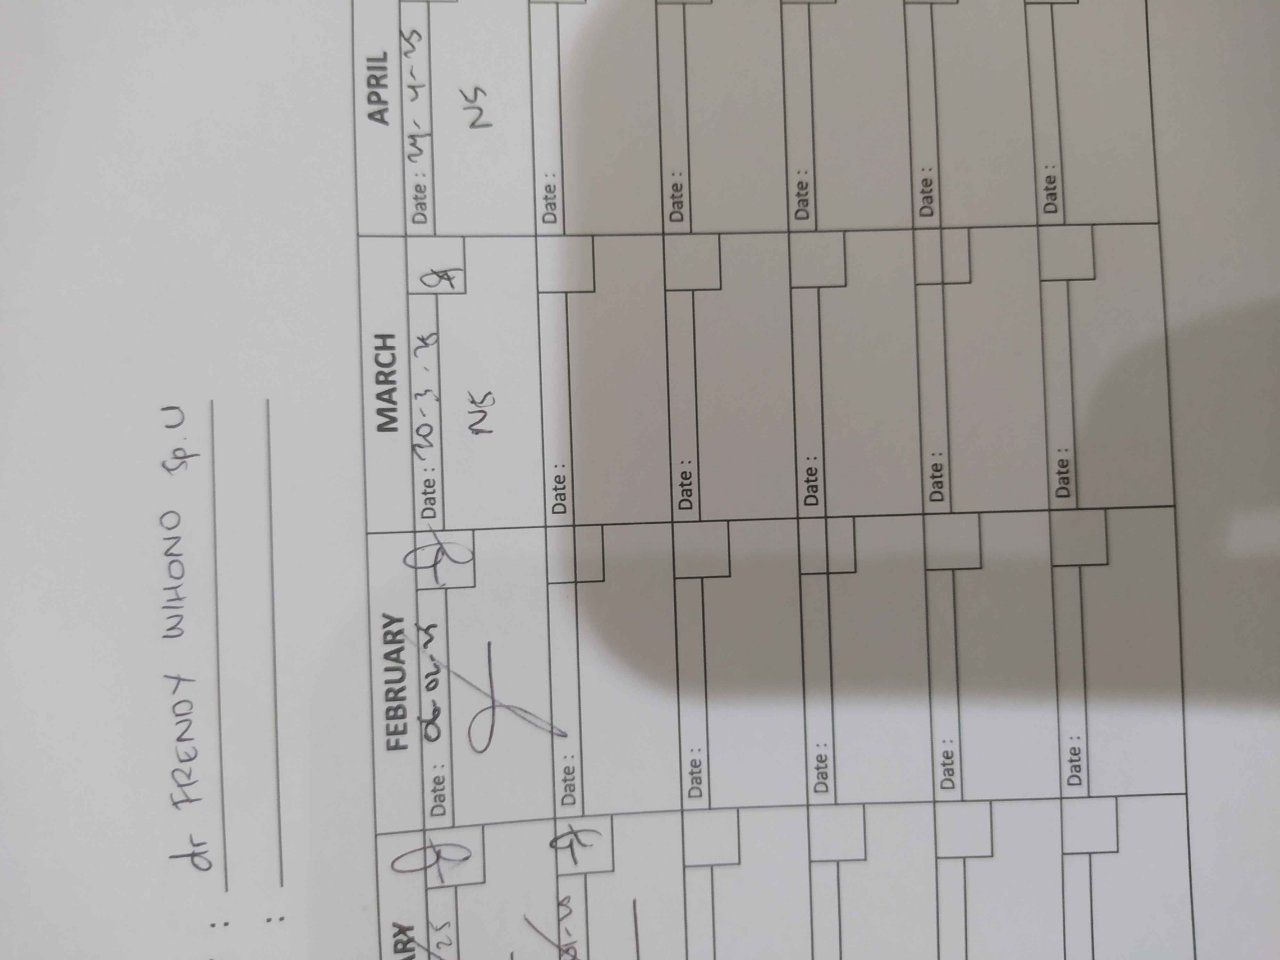 : dr FRENDY WIHONO Sp.U
:
ARY FEBRUARY MARCH APRIL
25 Date : 06-02-25 Date : 20-3-25 Date : 24-4-25
NS NS
Date : Date : Date :
Date : Date : Date :
Date : Date : Date :
Date : Date : Date :
Date : Date : Date :